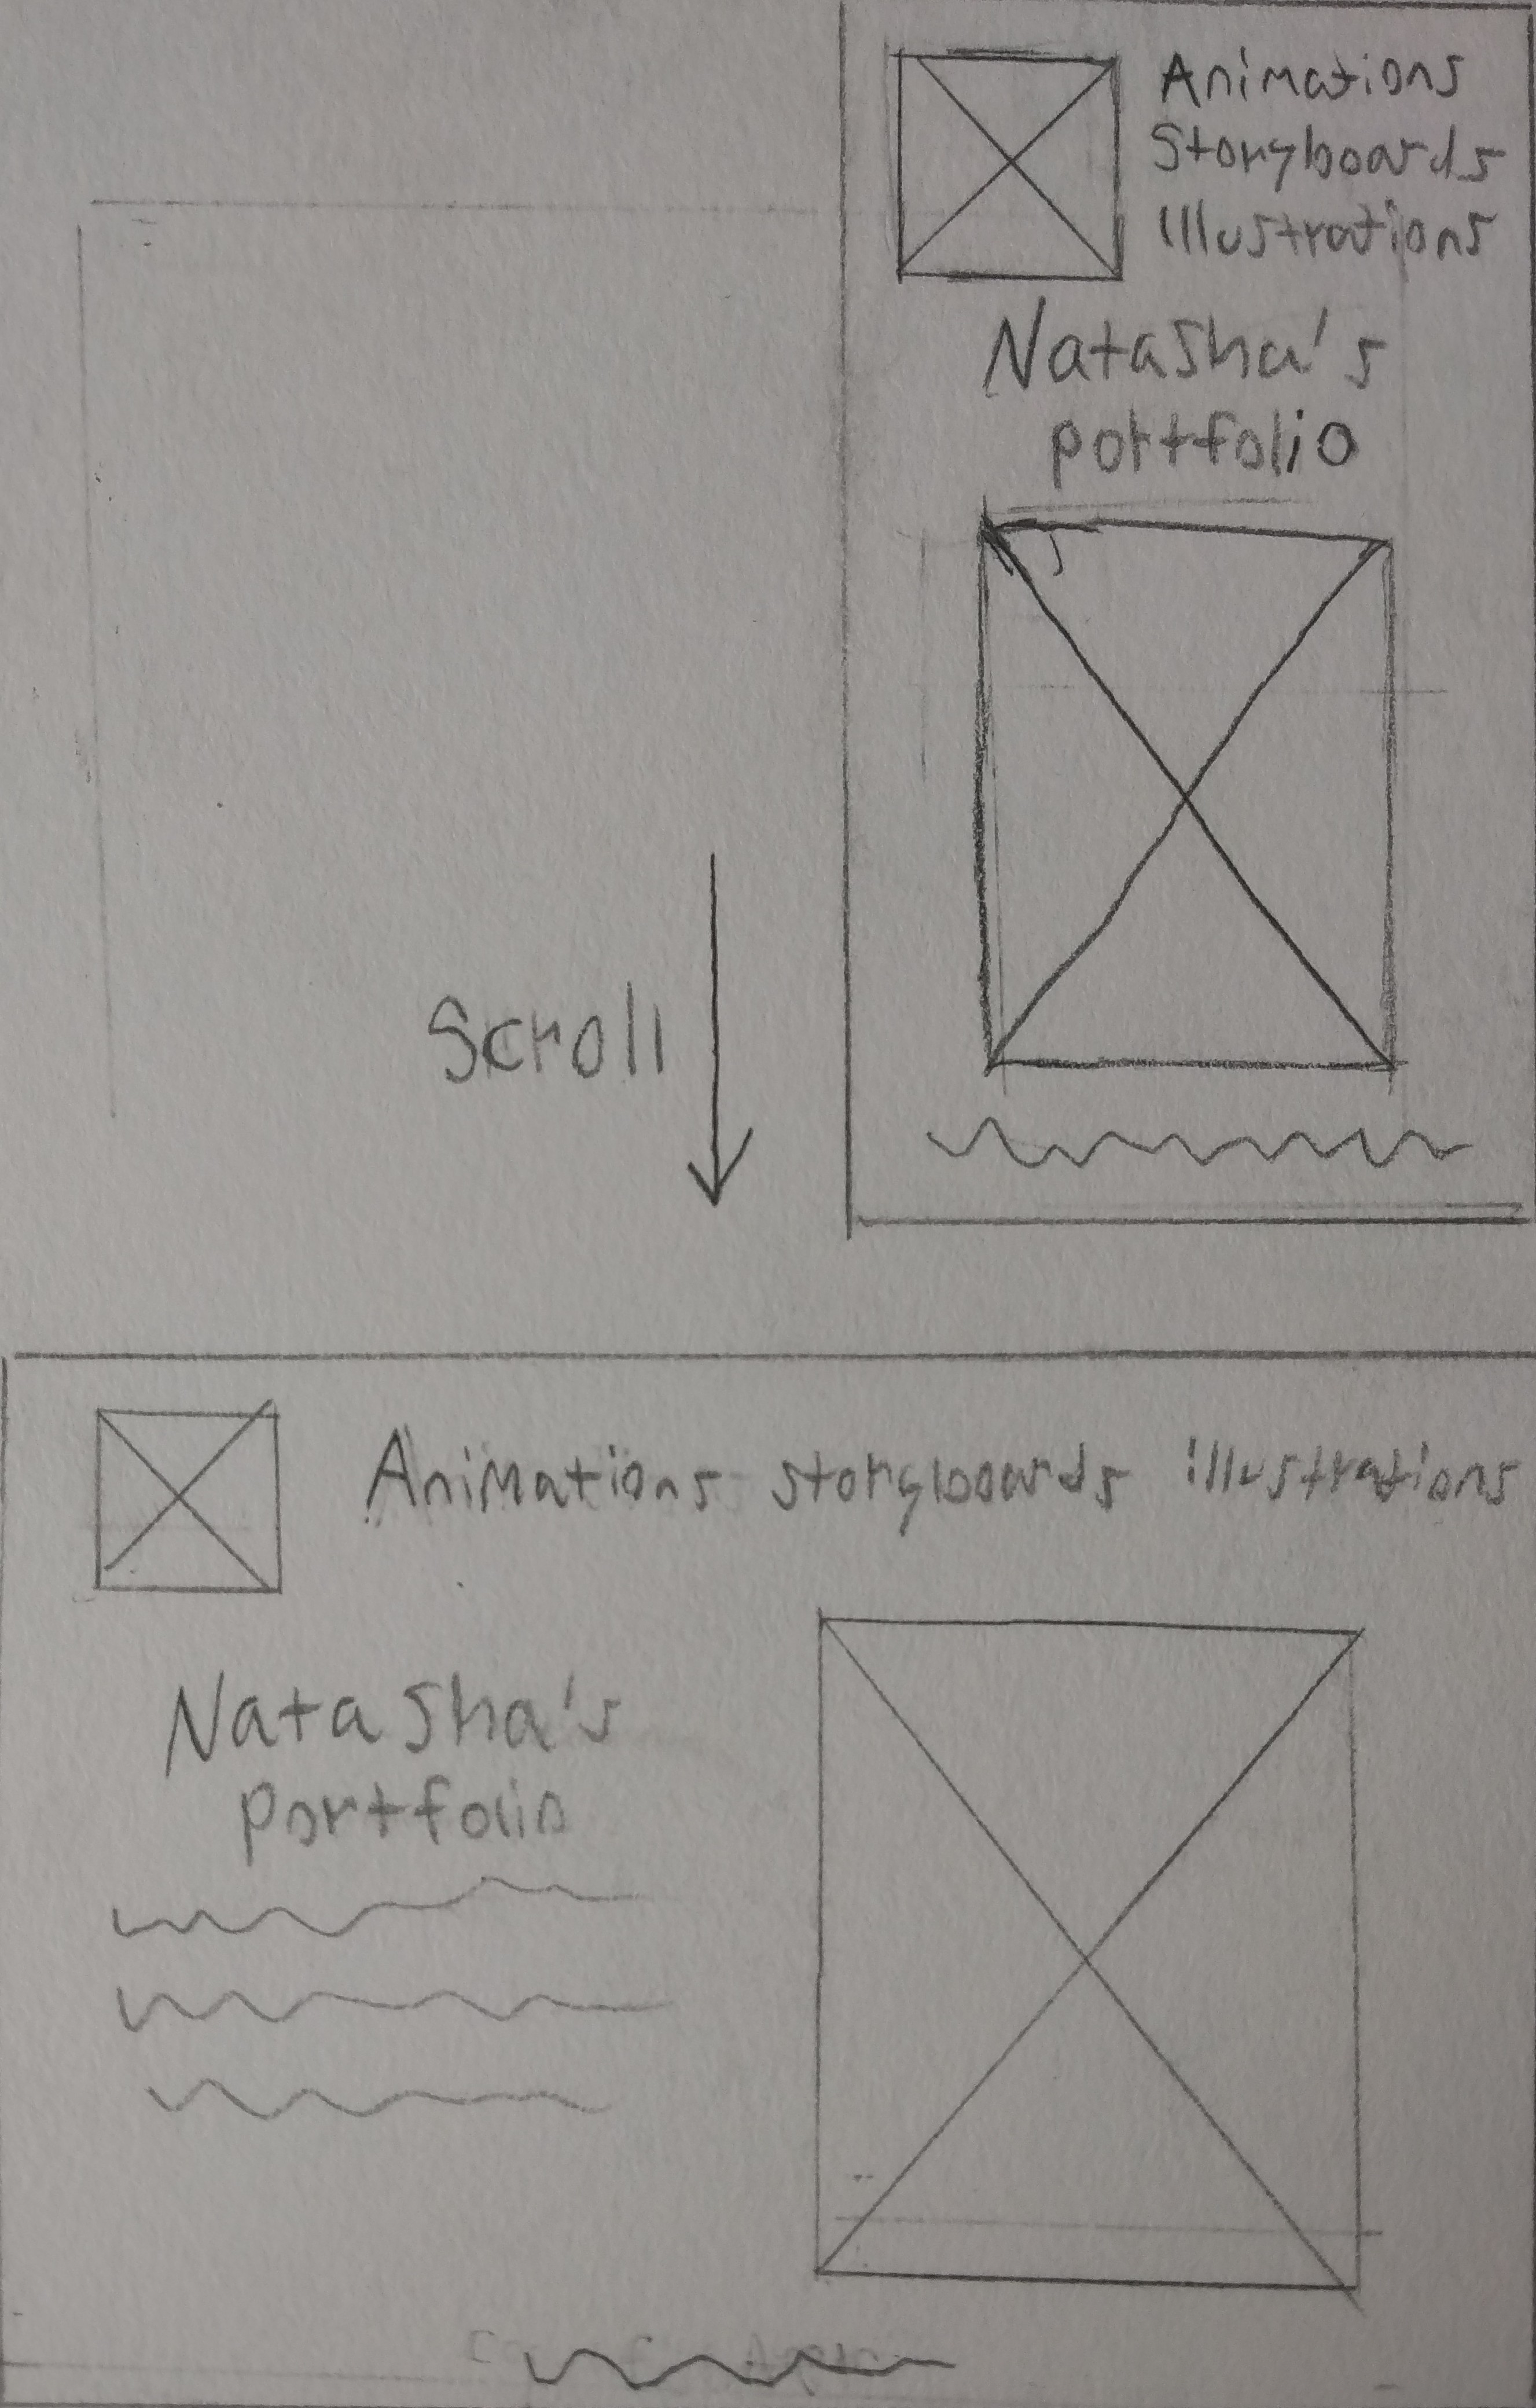 Animations
Storyboards
illustrations
Natasha's
portfolio
Scroll
Animations storyboards illustrations
Natasha's
portfolio